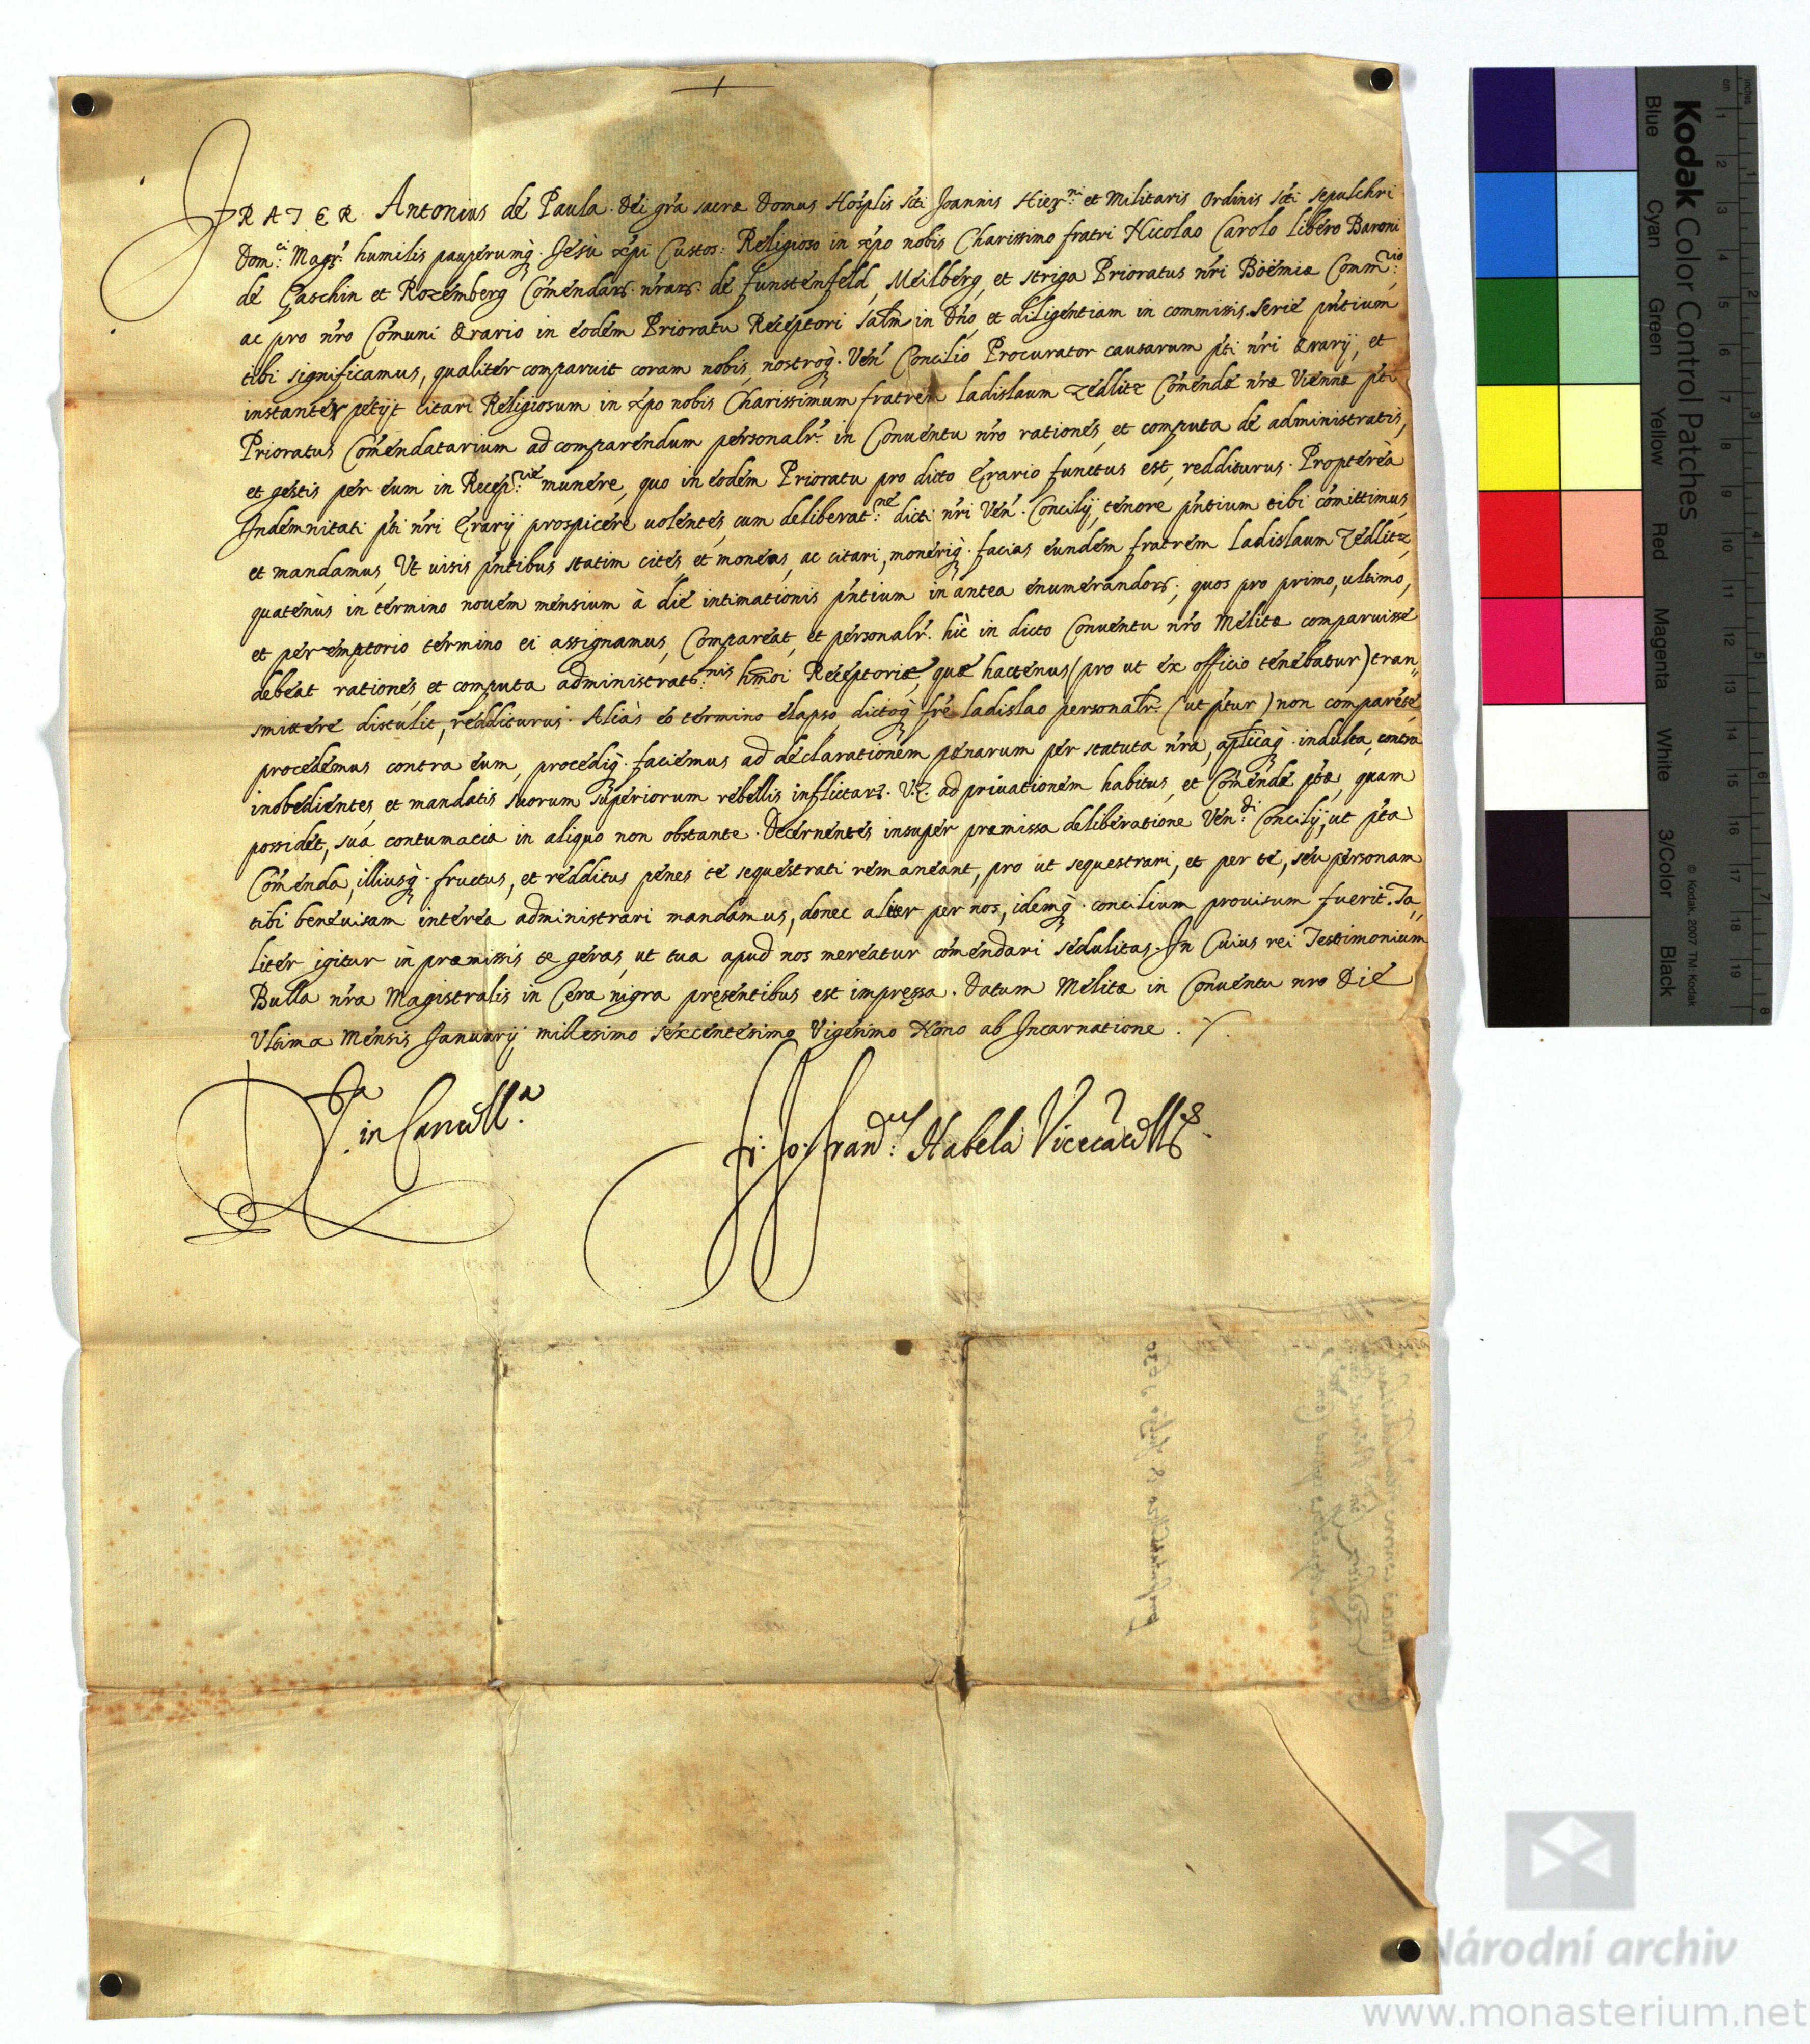 FRATER Antonius de Paula Dei gra sacræ Domus Hosplis scti Joannis Hier.ni et Militaris Ordinis scti sepulchri
Dom.ci Magr. humilis pauperumq. Jesu xpi Custos: Religioso in xpo nobis Charissimo fratri Nicolao Carolo libero Baroni
de Gaschin et Rozemberg Comendar. nrar. de funstenfeld, Meilberg, et striga Prioratus nri Böemiæ Comm.rio,
ac pro nro Comuni ærario in eodem Prioratu Receptori salm in Dno, et diligentiam in commissis. Serie pntium
tibi significamus, qualiter comparuit coram nobis, nostroq. Ven. Concilio Procurator causarum pti nri ærarij, et
instanter petijt citari Religiosum in xpo nobis Charissimum fratrem ladislaum zedlitz Comendæ nræ Viennæ pti
Prioratus Comendatarium ad comparendum personalr. in Conventu nro rationes, et computa de administratis,
et gestis per eum in Recep.riæ munere, quo in eodem Prioratu pro dicto Ærario functus est, redditurus. Propterea
Indemnitati pti nri Ærarij prospicere uolentes, cum deliberat.ne dicti nri Ven. Concilij, tenore pntium tibi comittimus,
et mandamus, Ut uisis pntibus statim cites et moneas, ac citari, moneriq. facias eundem fratrem ladislaum Zedlitz,
quatenùs in termino nouem mensium à die intimationis pntium in antea enumerandor., quos pro primo, ultimo,
et peremptorio termino ei assignamus, Compareat, et personalr. hìc in dicto Conuentu nro Melitæ comparuisse
debeat rationes et computa administrat.nis hmoi Receptoriæ, quæ hactenus (pro ut ex officio tenebatur) tran„
smittere distulit, redditurus. Aliàs eo termino elapso, dictoq. fre ladislao personalr. (ut ptur) non comparete,
procedemus contra eum, procediq. faciemus ad declarationem pænarum per statuta nra, aplicaq. indulta, contra
inobedientes, et mandatis suorum superiorum rebellis inflictar. V.Z. ad priuationem habitus, et Comendæ ptæ, quam
possidet, sua contumacia in aliquo non obstante. Decernentes insuper præmissa deliberatione Ven.di Concilij, ut pta
Comenda, illiusq. fructus, et redditus penes te sequestrati remaneant, pro ut sequestrari, et per te, seu personam
tibi beneuisam interea administrari mandamus, donec aliter per nos, idemq. concilium prouisum fuerit. Ta„
liter igitur in præmissis te geras, ut tua apud nos mereatur comendari sedulitas. In Cuius rei Testimonium
Bulla nra Magistralis in Cera nigra pręsentibus est impręssa. Datum Melitæ in Conuentu nro Die
Ultima Mensis Januarij millesimo sexcentesimo Vigesimo Nono ab Incarnatione.
R.ta in Cancell.a
fr. Jo: Fran.cus Habela Vicecancell.s
Kodak Color Control Patches
Blue Cyan Green Yellow Red Magenta White 3/Color Black
© Kodak, 2007 TM: Kodak
Národní archiv
www.monasterium.net